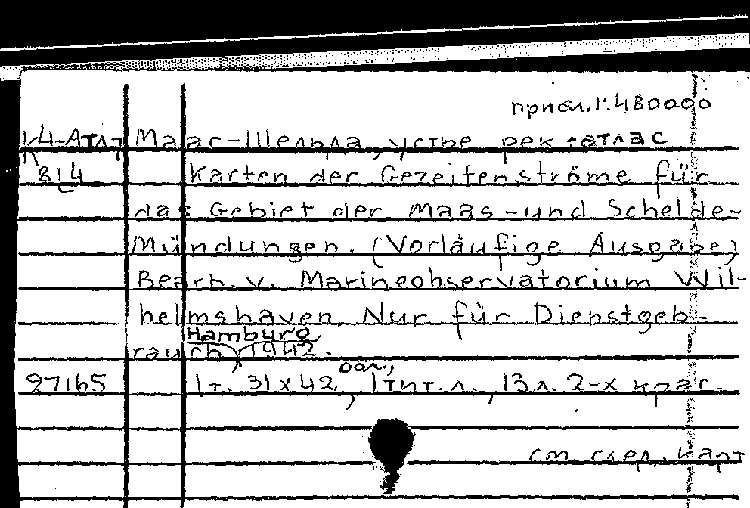 прибл. 1:480000
К4-Атл Маас-Шельда, устье рек-атлас
814 Karten der Gezeitenströme für
das Gebiet der Maas-und Schelde-
Mündungen. (Vorläufige Ausgabe)
Bearb. v. Marineobservatorium Wil-
helmshaven. Nur für Dienstgeb-
Hamburg,
rauch, 1942.
97165 1т. 31х42, 1тит.л., 13л. 2-х крас.
см. след. карт